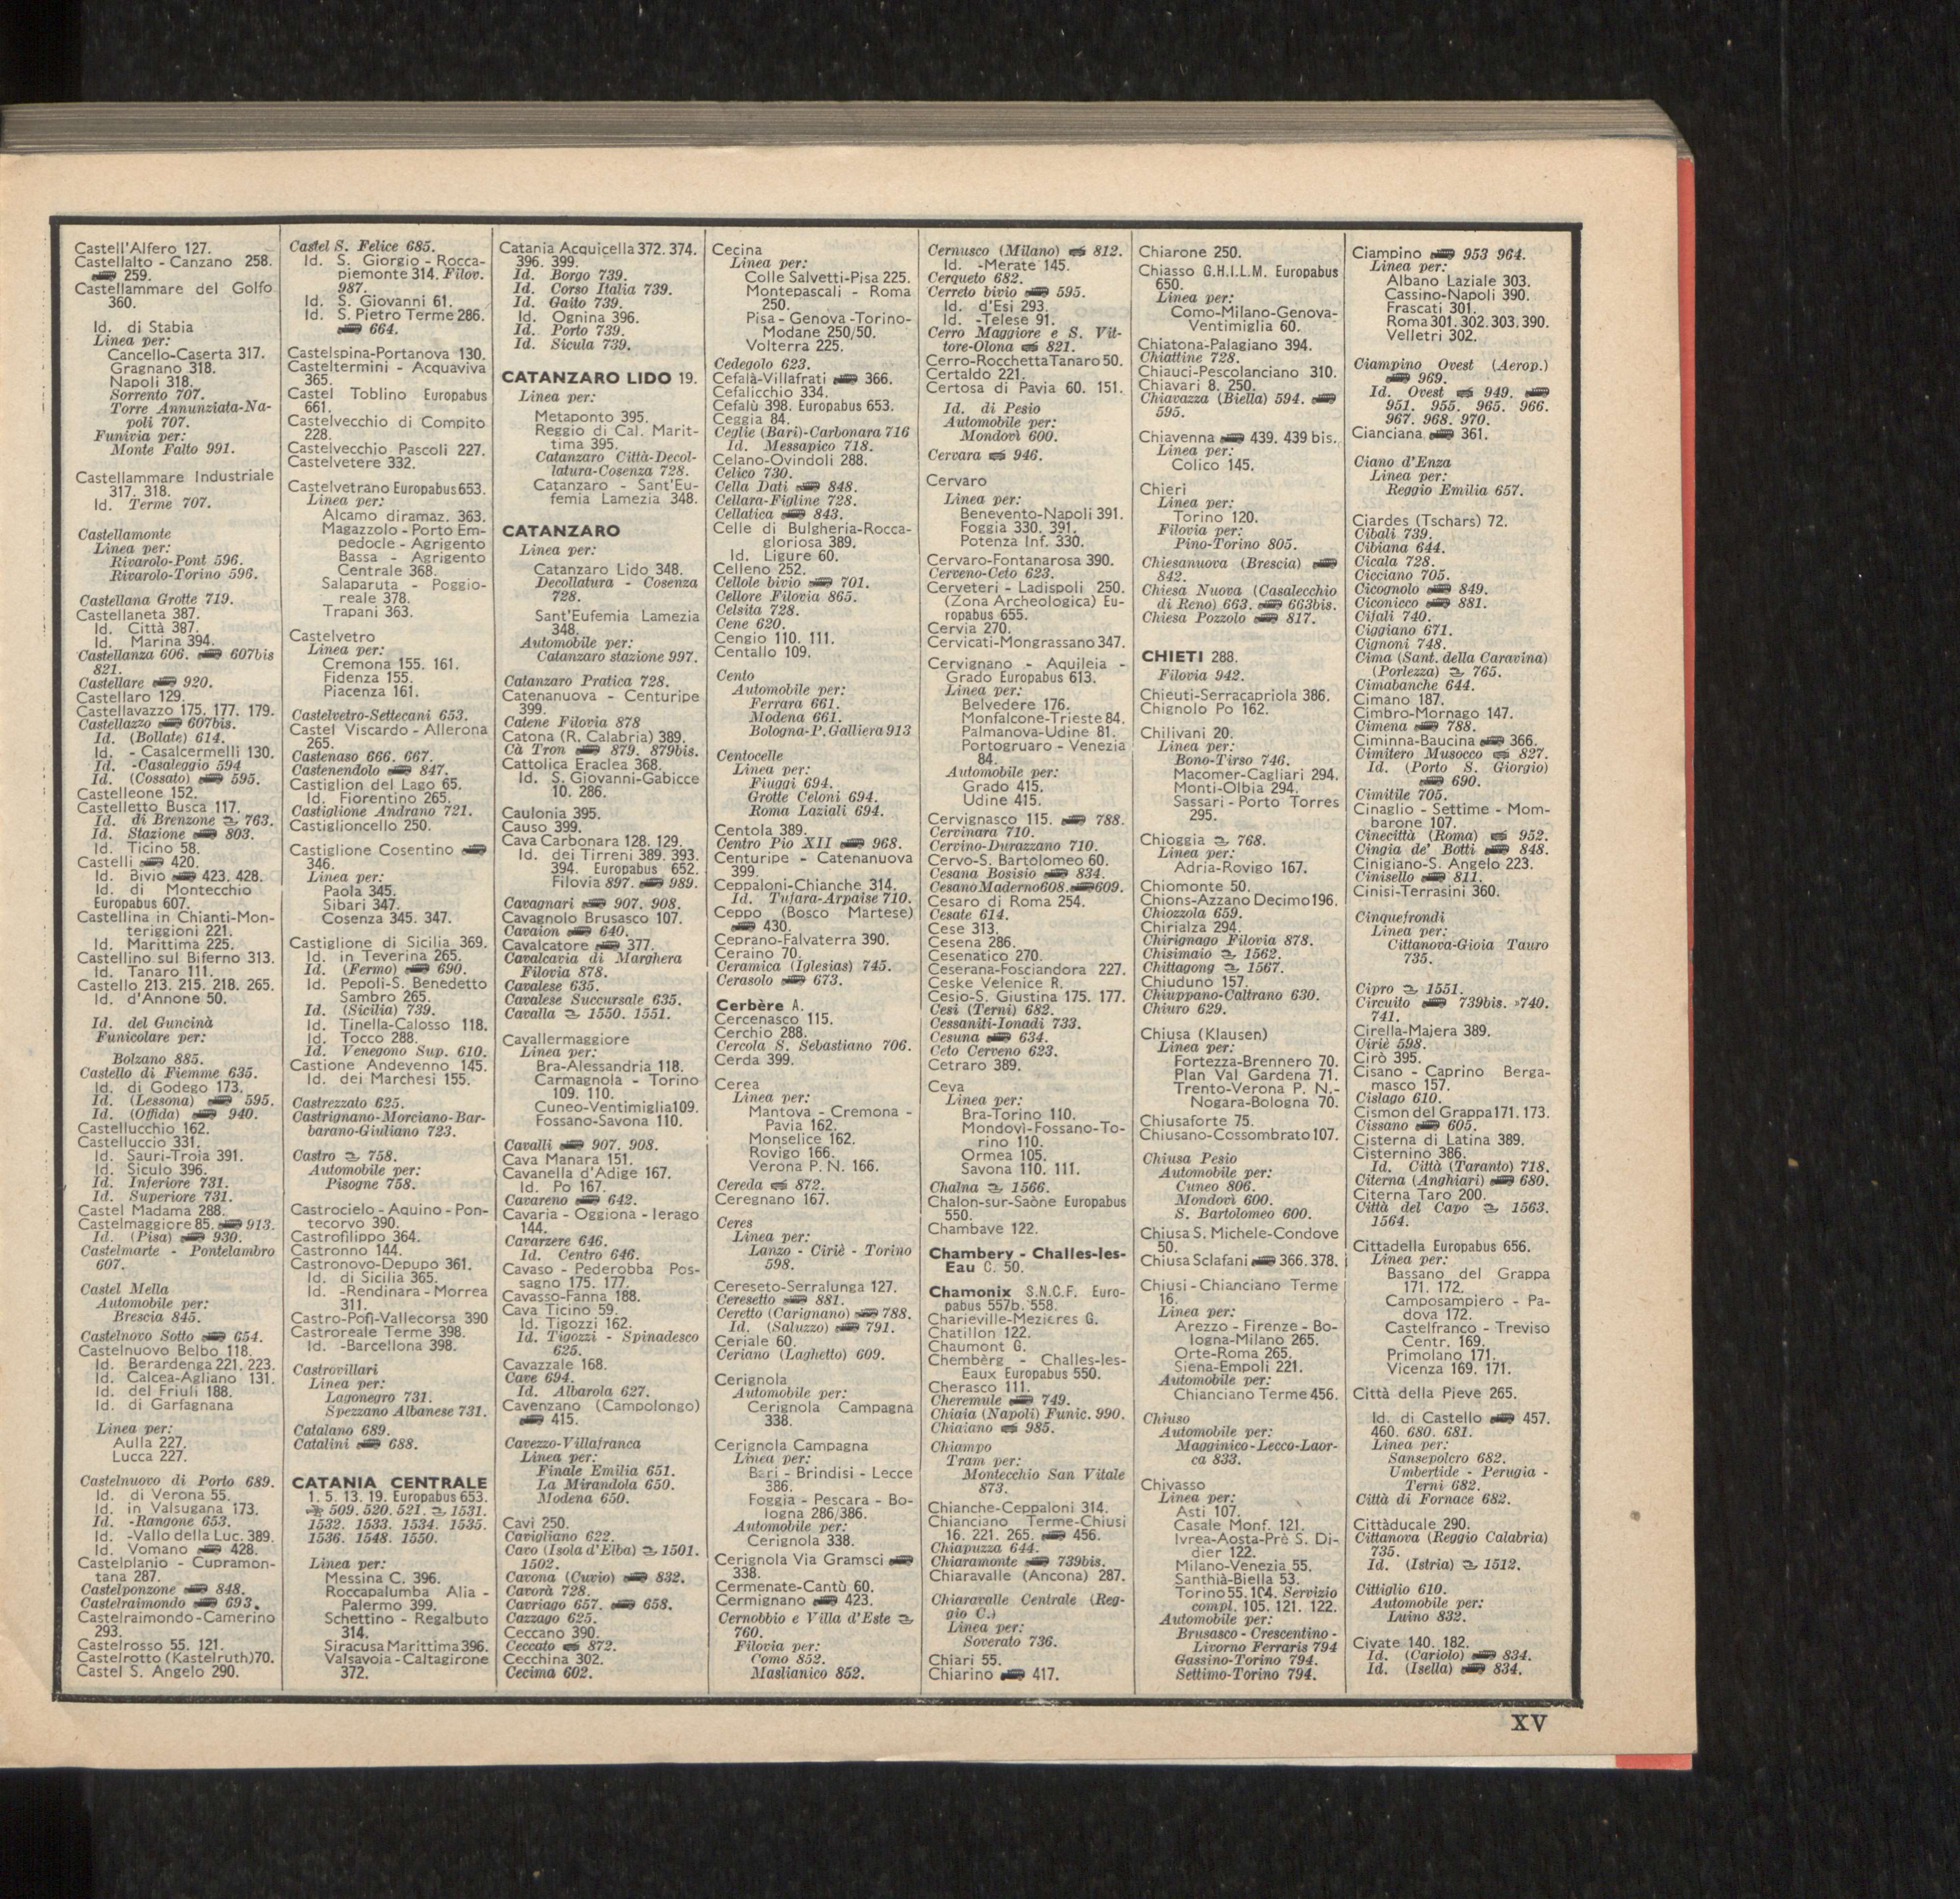 Castell'Alfero 127.
Castellalto - Canzano 258.
259.
Castellammare del Golfo
360.
Id. di Stabia
Linea per:
Cancello-Caserta 317.
Gragnano 318.
Napoli 318.
Sorrento 707.
Torre Annunziata-Na-
poli 707.
Funivia per:
Monte Faito 991.
Castellammare Industriale
317. 318.
Id. Terme 707.
Castellamonte
Linea per:
Rivarolo-Pont 596.
Rivarolo-Torino 596.
Castellana Grotte 719.
Castellaneta 387.
Id. Città 387.
Id. Marina 394.
Castellanza 606. 607bis
821.
Castellare 920.
Castellaro 129.
Castellavazzo 175. 177. 179.
Castellazzo 607bis.
Id. (Bollate) 614.
Id. - Casalcermelli 130.
Id. -Casaleggio 594
Id. (Cossato) 595.
Castelleone 152.
Castelletto Busca 117.
Id. di Brenzone 763.
Id. Stazione 803.
Id. Ticino 58.
Castelli 420.
Id. Bivio 423. 428.
Id. di Montecchio
Europabus 607.
Castellina in Chianti-Mon-
teriggioni 221.
Id. Marittima 225.
Castellino sul Biferno 313.
Id. Tanaro 111.
Castello 213. 215. 218. 265.
Id. d'Annone 50.
Id. del Guncinà
Funicolare per:
Bolzano 885.
Castello di Fiemme 635.
Id. di Godego 173.
Id. (Lessona) 595.
Id. (Offida) 940.
Castellucchio 162.
Castelluccio 331.
Id. Sauri-Troia 391.
Id. Siculo 396.
Id. Inferiore 731.
Id. Superiore 731.
Castel Madama 288.
Castelmaggiore 85. 913.
Id. (Pisa) 930.
Castelmarte - Pontelambro
607.
Castel Mella
Automobile per:
Brescia 845.
Castelnovo Sotto 654.
Castelnuovo Belbo 118.
Id. Berardenga 221. 223.
Id. Calcea-Agliano 131.
Id. del Friuli 188.
Id. di Garfagnana
Linea per:
Aulla 227.
Lucca 227.
Castelnuovo di Porto 689.
Id. di Verona 55.
Id. in Valsugana 173.
Id. -Rangone 653.
Id. -Vallo della Luc. 389.
Id. Vomano 428.
Castelplanio - Cupramon-
tana 287.
Castelponzone 848.
Castelraimondo 693.
Castelraimondo-Camerino
293.
Castelrosso 55. 121.
Castelrotto (Kastelruth) 70.
Castel S. Angelo 290.
Castel S. Felice 685.
Id. S. Giorgio - Rocca-
piemonte 314. Filov.
987.
Id. S. Giovanni 61.
Id. S. Pietro Terme 286.
664.
Castelspina-Portanova 130.
Casteltermini - Acquaviva
365.
Castel Toblino Europabus
661.
Castelvecchio di Compito
228.
Castelvecchio Pascoli 227.
Castelvetere 332.
Castelvetrano Europabus 653.
Linea per:
Alcamo diramaz. 363.
Magazzolo - Porto Em-
pedocle - Agrigento
Bassa - Agrigento
Centrale 368.
Salaparuta - Poggio-
reale 378.
Trapani 363.
Castelvetro
Linea per:
Cremona 155. 161.
Fidenza 155.
Piacenza 161.
Castelvetro-Settecani 653.
Castel Viscardo - Allerona
265.
Castenaso 666. 667.
Castenendolo 847.
Castiglion del Lago 65.
Id. Fiorentino 265.
Castiglione Andrano 721.
Castiglioncello 250.
Castiglione Cosentino
346.
Linea per:
Paola 345.
Sibari 347.
Cosenza 345. 347.
Castiglione di Sicilia 369.
Id. in Teverina 265.
Id. (Fermo) 690.
Id. Pepoli-S. Benedetto
Sambro 265.
Id. (Sicilia) 739.
Id. Tinella-Calosso 118.
Id. Tocco 288.
Id. Venegono Sup. 610.
Castione Andevenno 145.
Id. dei Marchesi 155.
Castrezzato 625.
Castrignano-Morciano-Bar-
barano-Giuliano 723.
Castro 758.
Automobile per:
Pisogne 758.
Castrocielo - Aquino - Pon-
tecorvo 390.
Castrofilippo 364.
Castronno 144.
Castronovo-Depupo 361.
Id. di Sicilia 365.
Id. -Rendinara - Morrea
311.
Castro-Pofi-Vallecorsa 390
Castroreale Terme 398.
Id. -Barcellona 398.
Castrovillari
Linea per:
Lagonegro 731.
Spezzano Albanese 731.
Catalano 689.
Catalini 688.
CATANIA CENTRALE
1. 5. 13. 19. Europabus 653.
509. 520. 521. 1531.
1532. 1533. 1534. 1535.
1536. 1548. 1550.
Linea per:
Messina C. 396.
Roccapalumba Alia -
Palermo 399.
Schettino - Regalbuto
314.
Siracusa Marittima 396.
Valsavoia - Caltagirone
372.
Catania Acquicella 372. 374.
396. 399.
Id. Borgo 739.
Id. Corso Italia 739.
Id. Gaito 739.
Id. Ognina 396.
Id. Porto 739.
Id. Sicula 739.
CATANZARO LIDO 19.
Linea per:
Metaponto 395.
Reggio di Cal. Marit-
tima 395.
Catanzaro Città-Decol-
latura-Cosenza 728.
Catanzaro - Sant'Eu-
femia Lamezia 348.
CATANZARO
Linea per:
Catanzaro Lido 348.
Decollatura - Cosenza
728.
Sant'Eufemia Lamezia
348.
Automobile per:
Catanzaro stazione 997.
Catanzaro Pratica 728.
Catenanuova - Centuripe
399.
Catene Filovia 878
Catona (R. Calabria) 389.
Cà Tron 879. 879bis.
Cattolica Eraclea 368.
Id. S. Giovanni-Gabicce
10. 286.
Caulonia 395.
Causo 399.
Cava Carbonara 128. 129.
Id. dei Tirreni 389. 393.
394. Europabus 652.
Filovia 897. 989.
Cavagnari 907. 908.
Cavagnolo Brusasco 107.
Cavaion 640.
Cavalcatore 377.
Cavalcavia di Marghera
Filovia 878.
Cavalese 635.
Cavalese Succursale 635.
Cavalla 1550. 1551.
Cavallermaggiore
Linea per:
Bra-Alessandria 118.
Carmagnola - Torino
109. 110.
Cuneo-Ventimiglia 109.
Fossano-Savona 110.
Cavalli 907. 908.
Cava Manara 151.
Cavanella d'Adige 167.
Id. Po 167.
Cavareno 642.
Cavaria - Oggiona - Ierago
144.
Cavarzere 646.
Id. Centro 646.
Cavaso - Pederobba Pos-
sagno 175. 177.
Cavasso-Fanna 188.
Cava Ticino 59.
Id. Tigozzi 162.
Id. Tigozzi - Spinadesco
625.
Cavazzale 168.
Cave 694.
Id. Albarola 627.
Cavenzano (Campolongo)
415.
Cavezzo-Villafranca
Linea per:
Finale Emilia 651.
La Mirandola 650.
Modena 650.
Cavi 250.
Cavigliano 622.
Cavo (Isola d'Elba) 1501.
1502.
Cavona (Cuvio) 832.
Cavorà 728.
Cavriago 657. 658.
Cazzago 625.
Ceccano 390.
Ceccato 872.
Cecchina 302.
Cecima 602.
Cecina
Linea per:
Colle Salvetti-Pisa 225.
Montepascali - Roma
250.
Pisa - Genova -Torino-
Modane 250/50.
Volterra 225.
Cedegolo 623.
Cefalà-Villafrati 366.
Cefalicchio 334.
Cefalù 398. Europabus 653.
Ceggia 84.
Ceglie (Bari)-Carbonara 716
Id. Messapico 718.
Celano-Ovindoli 288.
Celico 730.
Cella Dati 848.
Cellara-Figline 728.
Cellatica 843.
Celle di Bulgheria-Rocca-
gloriosa 389.
Id. Ligure 60.
Celleno 252.
Cellole bivio 701.
Cellore Filovia 865.
Celsita 728.
Cene 620.
Cengio 110. 111.
Centallo 109.
Cento
Automobile per:
Ferrara 661.
Modena 661.
Bologna-P. Galliera 913
Centocelle
Linea per:
Fiuggi 694.
Grotte Celoni 694.
Roma Laziali 694.
Centola 389.
Centro Pio XII 968.
Centuripe - Catenanuova
399.
Ceppaloni-Chianche 314.
Id. Tufara-Arpaise 710.
Ceppo (Bosco Martese)
430.
Ceprano-Falvaterra 390.
Ceraino 70.
Ceramica (Iglesias) 745.
Cerasolo 673.
Cerbère A.
Cercenasco 115.
Cerchio 288.
Cercola S. Sebastiano 706.
Cerda 399.
Cerea
Linea per:
Mantova - Cremona -
Pavia 162.
Monselice 162.
Rovigo 166.
Verona P. N. 166.
Cereda 872.
Ceregnano 167.
Ceres
Linea per:
Lanzo - Ciriè - Torino
598.
Cereseto-Serralunga 127.
Ceresetto 881.
Ceretto (Carignano) 788.
Id. (Saluzzo) 791.
Ceriale 60.
Ceriano (Laghetto) 609.
Cerignola
Automobile per:
Cerignola Campagna
338.
Cerignola Campagna
Linea per:
Bari - Brindisi - Lecce
386.
Foggia - Pescara - Bo-
logna 286/386.
Automobile per:
Cerignola 338.
Cerignola Via Gramsci
338.
Cermenate-Cantù 60.
Cermignano 423.
Cernobbio e Villa d'Este
760.
Filovia per:
Como 852.
Maslianico 852.
Cernusco (Milano) 812.
Id. -Merate 145.
Cerqueto 682.
Cerreto bivio 595.
Id. d'Esi 293.
Id. -Telese 91.
Cerro Maggiore e S. Vit-
tore-Olona 821.
Cerro-Rocchetta Tanaro 50.
Certaldo 221.
Certosa di Pavia 60. 151.
Id. di Pesio
Automobile per:
Mondovì 600.
Cervara 946.
Cervaro
Linea per:
Benevento-Napoli 391.
Foggia 330. 391.
Potenza Inf. 330.
Cervaro-Fontanarosa 390.
Cerveno-Ceto 623.
Cerveteri - Ladispoli 250.
(Zona Archeologica) Eu-
ropabus 655.
Cervia 270.
Cervicati-Mongrassano 347.
Cervignano - Aquileia -
Grado Europabus 613.
Linea per:
Belvedere 176.
Monfalcone-Trieste 84.
Palmanova-Udine 81.
Portogruaro - Venezia
84.
Automobile per:
Grado 415.
Udine 415.
Cervignasco 115. 788.
Cervinara 710.
Cervino-Durazzano 710.
Cervo-S. Bartolomeo 60.
Cesana Bosisio 834.
Cesano Maderno 608. 609.
Cesaro di Roma 254.
Cesate 614.
Cese 313.
Cesena 286.
Cesenatico 270.
Ceserana-Fosciandora 227.
Ceske Velenice R.
Cesio-S. Giustina 175. 177.
Cesi (Terni) 682.
Cessaniti-Ionadi 733.
Cesuna 634.
Ceto Cerveno 623.
Cetraro 389.
Ceva
Linea per:
Bra-Torino 110.
Mondovì-Fossano-To-
rino 110.
Ormea 105.
Savona 110. 111.
Chalna 1566.
Chalon-sur-Saône Europabus
550.
Chambave 122.
Chambery - Challes-les-
Eau C. 50.
Chamonix S.N.C.F. Euro-
pabus 557b. 558.
Charieville-Mezicres G.
Chatillon 122.
Chaumont G.
Chembèrg - Challes-les-
Eaux Europabus 550.
Cherasco 111.
Cheremule 749.
Chiaia (Napoli) Funic. 990.
Chiaiano 985.
Chiampo
Tram per:
Montecchio San Vitale
873.
Chianche-Ceppaloni 314.
Chianciano Terme-Chiusi
16. 221. 265. 456.
Chiapuzza 644.
Chiaramonte 739bis.
Chiaravalle (Ancona) 287.
Chiaravalle Centrale (Reg-
gio C.)
Linea per:
Soverato 736.
Chiari 55.
Chiarino 417.
Chiarone 250.
Chiasso G.H.I.L.M. Europabus
650.
Linea per:
Como-Milano-Genova-
Ventimiglia 60.
Chiatona-Palagiano 394.
Chiattine 728.
Chiauci-Pescolanciano 310.
Chiavari 8. 250.
Chiavazza (Biella) 594.
595.
Chiavenna 439. 439 bis.
Linea per:
Colico 145.
Chieri
Linea per:
Torino 120.
Filovia per:
Pino-Torino 805.
Chiesanuova (Brescia)
842.
Chiesa Nuova (Casalecchio
di Reno) 663. 663bis.
Chiesa Pozzolo 817.
CHIETI 288.
Filovia 942.
Chieuti-Serracapriola 386.
Chignolo Po 162.
Chilivani 20.
Linea per:
Bono-Tirso 746.
Macomer-Cagliari 294.
Monti-Olbia 294.
Sassari - Porto Torres
295.
Chioggia 768.
Linea per:
Adria-Rovigo 167.
Chiomonte 50.
Chions-Azzano Decimo 196.
Chiozzola 659.
Chirialza 294.
Chirignago Filovia 878.
Chisimaio 1562.
Chittagong 1567.
Chiuduno 157.
Chiuppano-Caltrano 630.
Chiuro 629.
Chiusa (Klausen)
Linea per:
Fortezza-Brennero 70.
Plan Val Gardena 71.
Trento-Verona P. N.-
Nogara-Bologna 70.
Chiusaforte 75.
Chiusano-Cossombrato 107.
Chiusa Pesio
Automobile per:
Cuneo 806.
Mondovì 600.
S. Bartolomeo 600.
Chiusa S. Michele-Condove
50.
Chiusa Sclafani 366. 378.
Chiusi - Chianciano Terme
16.
Linea per:
Arezzo - Firenze - Bo-
logna-Milano 265.
Orte-Roma 265.
Siena-Empoli 221.
Automobile per:
Chianciano Terme 456.
Chiuso
Automobile per:
Magginico-Lecco-Laor-
ca 833.
Chivasso
Linea per:
Asti 107.
Casale Monf. 121.
Ivrea-Aosta-Prè S. Di-
dier 122.
Milano-Venezia 55.
Santhià-Biella 53.
Torino 55. 104. Servizio
compl. 105. 121. 122.
Automobile per:
Brusasco - Crescentino -
Livorno Ferraris 794
Gassino-Torino 794.
Settimo-Torino 794.
Ciampino 953 964.
Linea per:
Albano Laziale 303.
Cassino-Napoli 390.
Frascati 301.
Roma 301. 302. 303. 390.
Velletri 302.
Ciampino Ovest (Aerop.)
969.
Id. Ovest 949.
951. 955. 965. 966.
967. 968. 970.
Cianciana 361.
Ciano d'Enza
Linea per:
Reggio Emilia 657.
Ciardes (Tschars) 72.
Cibali 739.
Cibiana 644.
Cicala 728.
Cicciano 705.
Cicognolo 849.
Ciconicco 881.
Cifali 740.
Ciggiano 671.
Cignoni 748.
Cima (Sant. della Caravina)
(Porlezza) 765.
Cimabanche 644.
Cimano 187.
Cimbro-Mornago 147.
Cimena 788.
Ciminna-Baucina 366.
Cimitero Musocco 827.
Id. (Porto S. Giorgio)
690.
Cimitile 705.
Cinaglio - Settime - Mom-
barone 107.
Cinecittà (Roma) 952.
Cingia de' Botti 848.
Cinigiano-S. Angelo 223.
Cinisello 811.
Cinisi-Terrasini 360.
Cinquefrondi
Linea per:
Cittanova-Gioia Tauro
735.
Cipro 1551.
Circuito 739bis. »740.
741.
Cirella-Majera 389.
Ciriè 598.
Cirò 395.
Cisano - Caprino Berga-
masco 157.
Cislago 610.
Cismon del Grappa 171. 173.
Cissano 605.
Cisterna di Latina 389.
Cisternino 386.
Id. Città (Taranto) 718.
Citerna (Anghiari) 680.
Citerna Taro 200.
Città del Capo 1563.
1564.
Cittadella Europabus 656.
Linea per:
Bassano del Grappa
171. 172.
Camposampiero - Pa-
dova 172.
Castelfranco - Treviso
Centr. 169.
Primolano 171.
Vicenza 169. 171.
Città della Pieve 265.
Id. di Castello 457.
460. 680. 681.
Linea per:
Sansepolcro 682.
Umbertide - Perugia -
Terni 682.
Città di Fornace 682.
Cittàducale 290.
Cittanova (Reggio Calabria)
735.
Id. (Istria) 1512.
Cittiglio 610.
Automobile per:
Luino 832.
Civate 140. 182.
Id. (Cariolo) 834.
Id. (Isella) 834.
XV